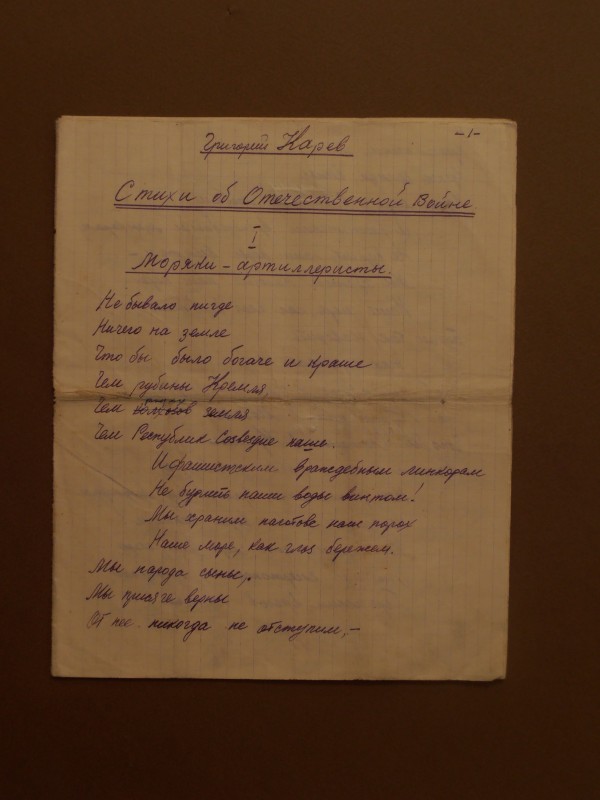 -1-
Григорий Карев
Стихи об Отечественной Войне
I
Моряки - артиллеристы.
Не бывало нигде
Ничего на земле
Что бы было богаче и краше
Чем рубины Кремля,
Чем земля
Чем Республик Советние наше.
И фашистским враждебным линкорам
Не бурить наши воды винтом!
Мы храним наготове наш порох
Наше море, как глаз бережем.
Мы народа сыны,
Мы присяге верны
От нее никогда не отступим, -